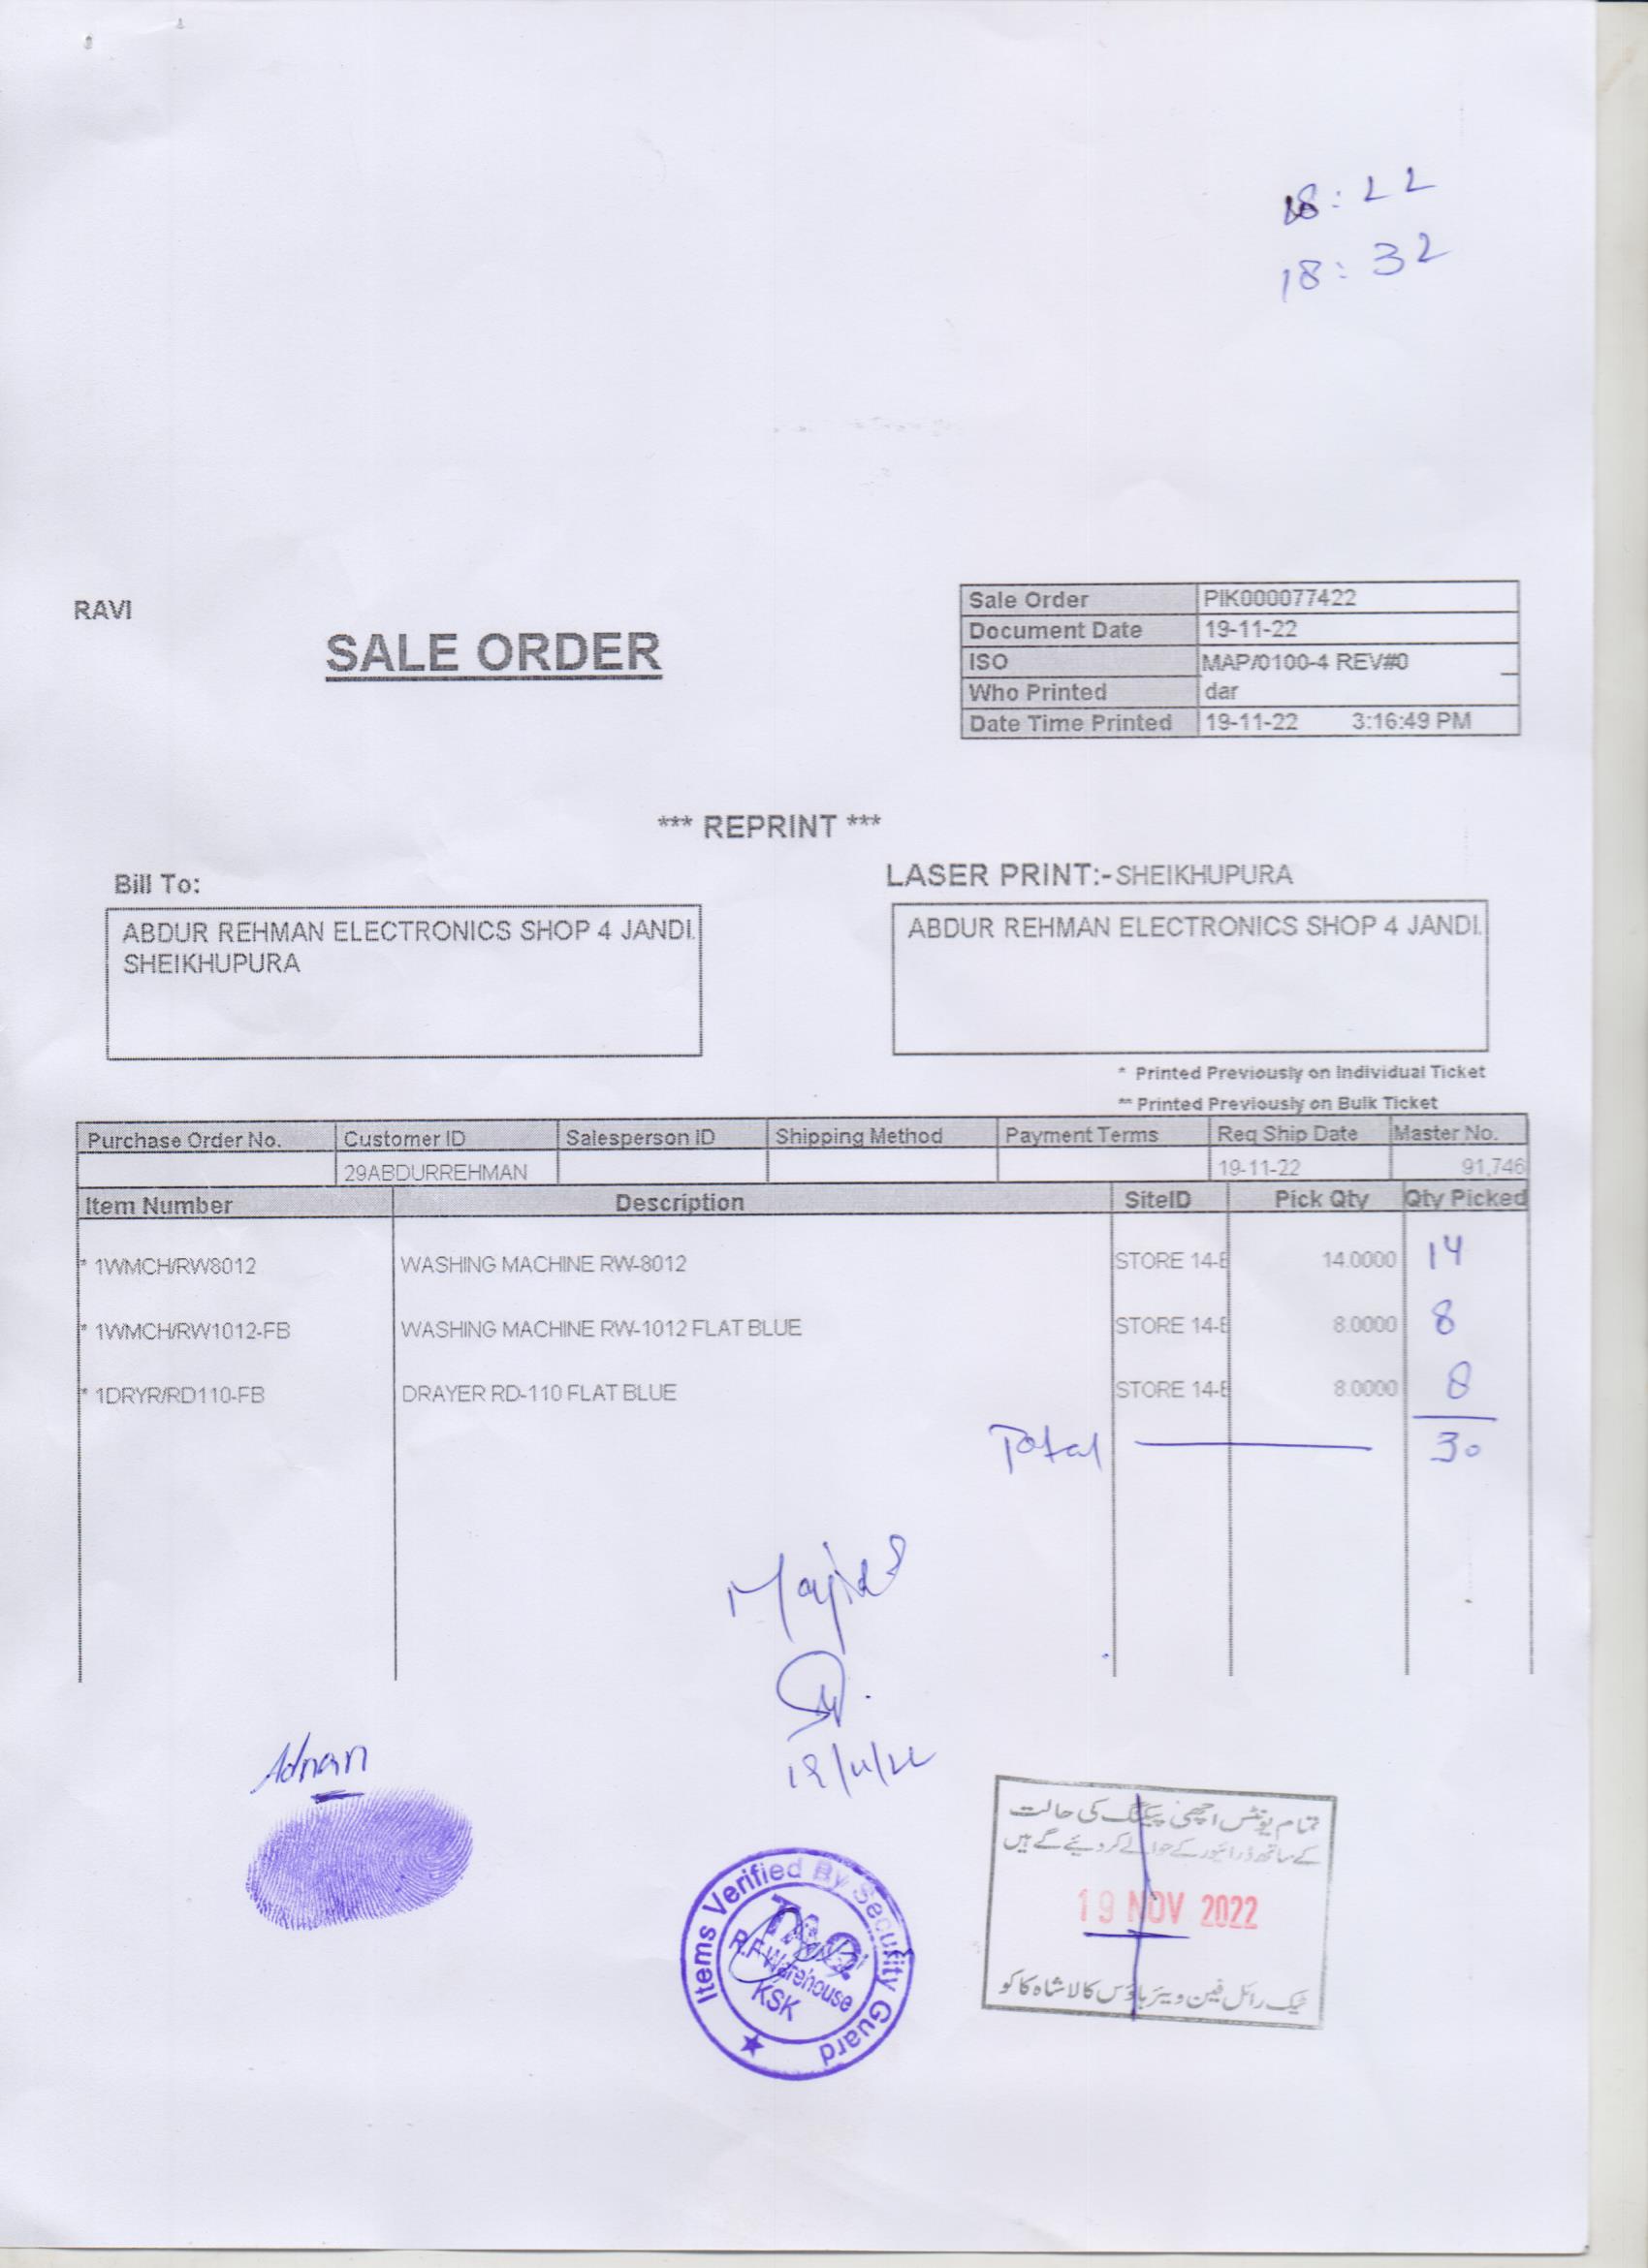 18:22
18:32
RAVI
SALE ORDER
Sale Order PIK000077422
Document Date 19-11-22
ISO MAP/0100-4 REV#0
Who Printed dar
Date Time Printed 19-11-22 3:16:49 PM
*** REPRINT ***
Bill To:
ABDUR REHMAN ELECTRONICS SHOP 4 JANDI.
SHEIKHUPURA
LASER PRINT:-SHEIKHUPURA
ABDUR REHMAN ELECTRONICS SHOP 4 JANDI.
* Printed Previously on Individual Ticket
** Printed Previously on Bulk Ticket
Purchase Order No. Customer ID Salesperson ID Shipping Method Payment Terms Req Ship Date Master No.
29ABDURREHMAN 19-11-22 91,746
Item Number Description SiteID Pick Qty Qty Picked
* 1WMCH/RW8012 WASHING MACHINE RW-8012 STORE 14-E 14.0000 14
* 1WMCH/RW1012-FB WASHING MACHINE RW-1012 FLAT BLUE STORE 14-E 8.0000 8
* 1DRYR/RD110-FB DRAYER RD-110 FLAT BLUE STORE 14-E 8.0000 8
Total 30
Majid
19/11/22
Adnan
Items Verified By Security Guard
R.F Warehouse
KSK
تمام یونٹس اچھی پیکنگ کی حالت
کے ساتھ ڈرائیور کے حوالے کر دیئے گے ہیں
19 NOV 2022
ٹیک رائل فین ویئر ہاؤس کالا شاہ کاکو